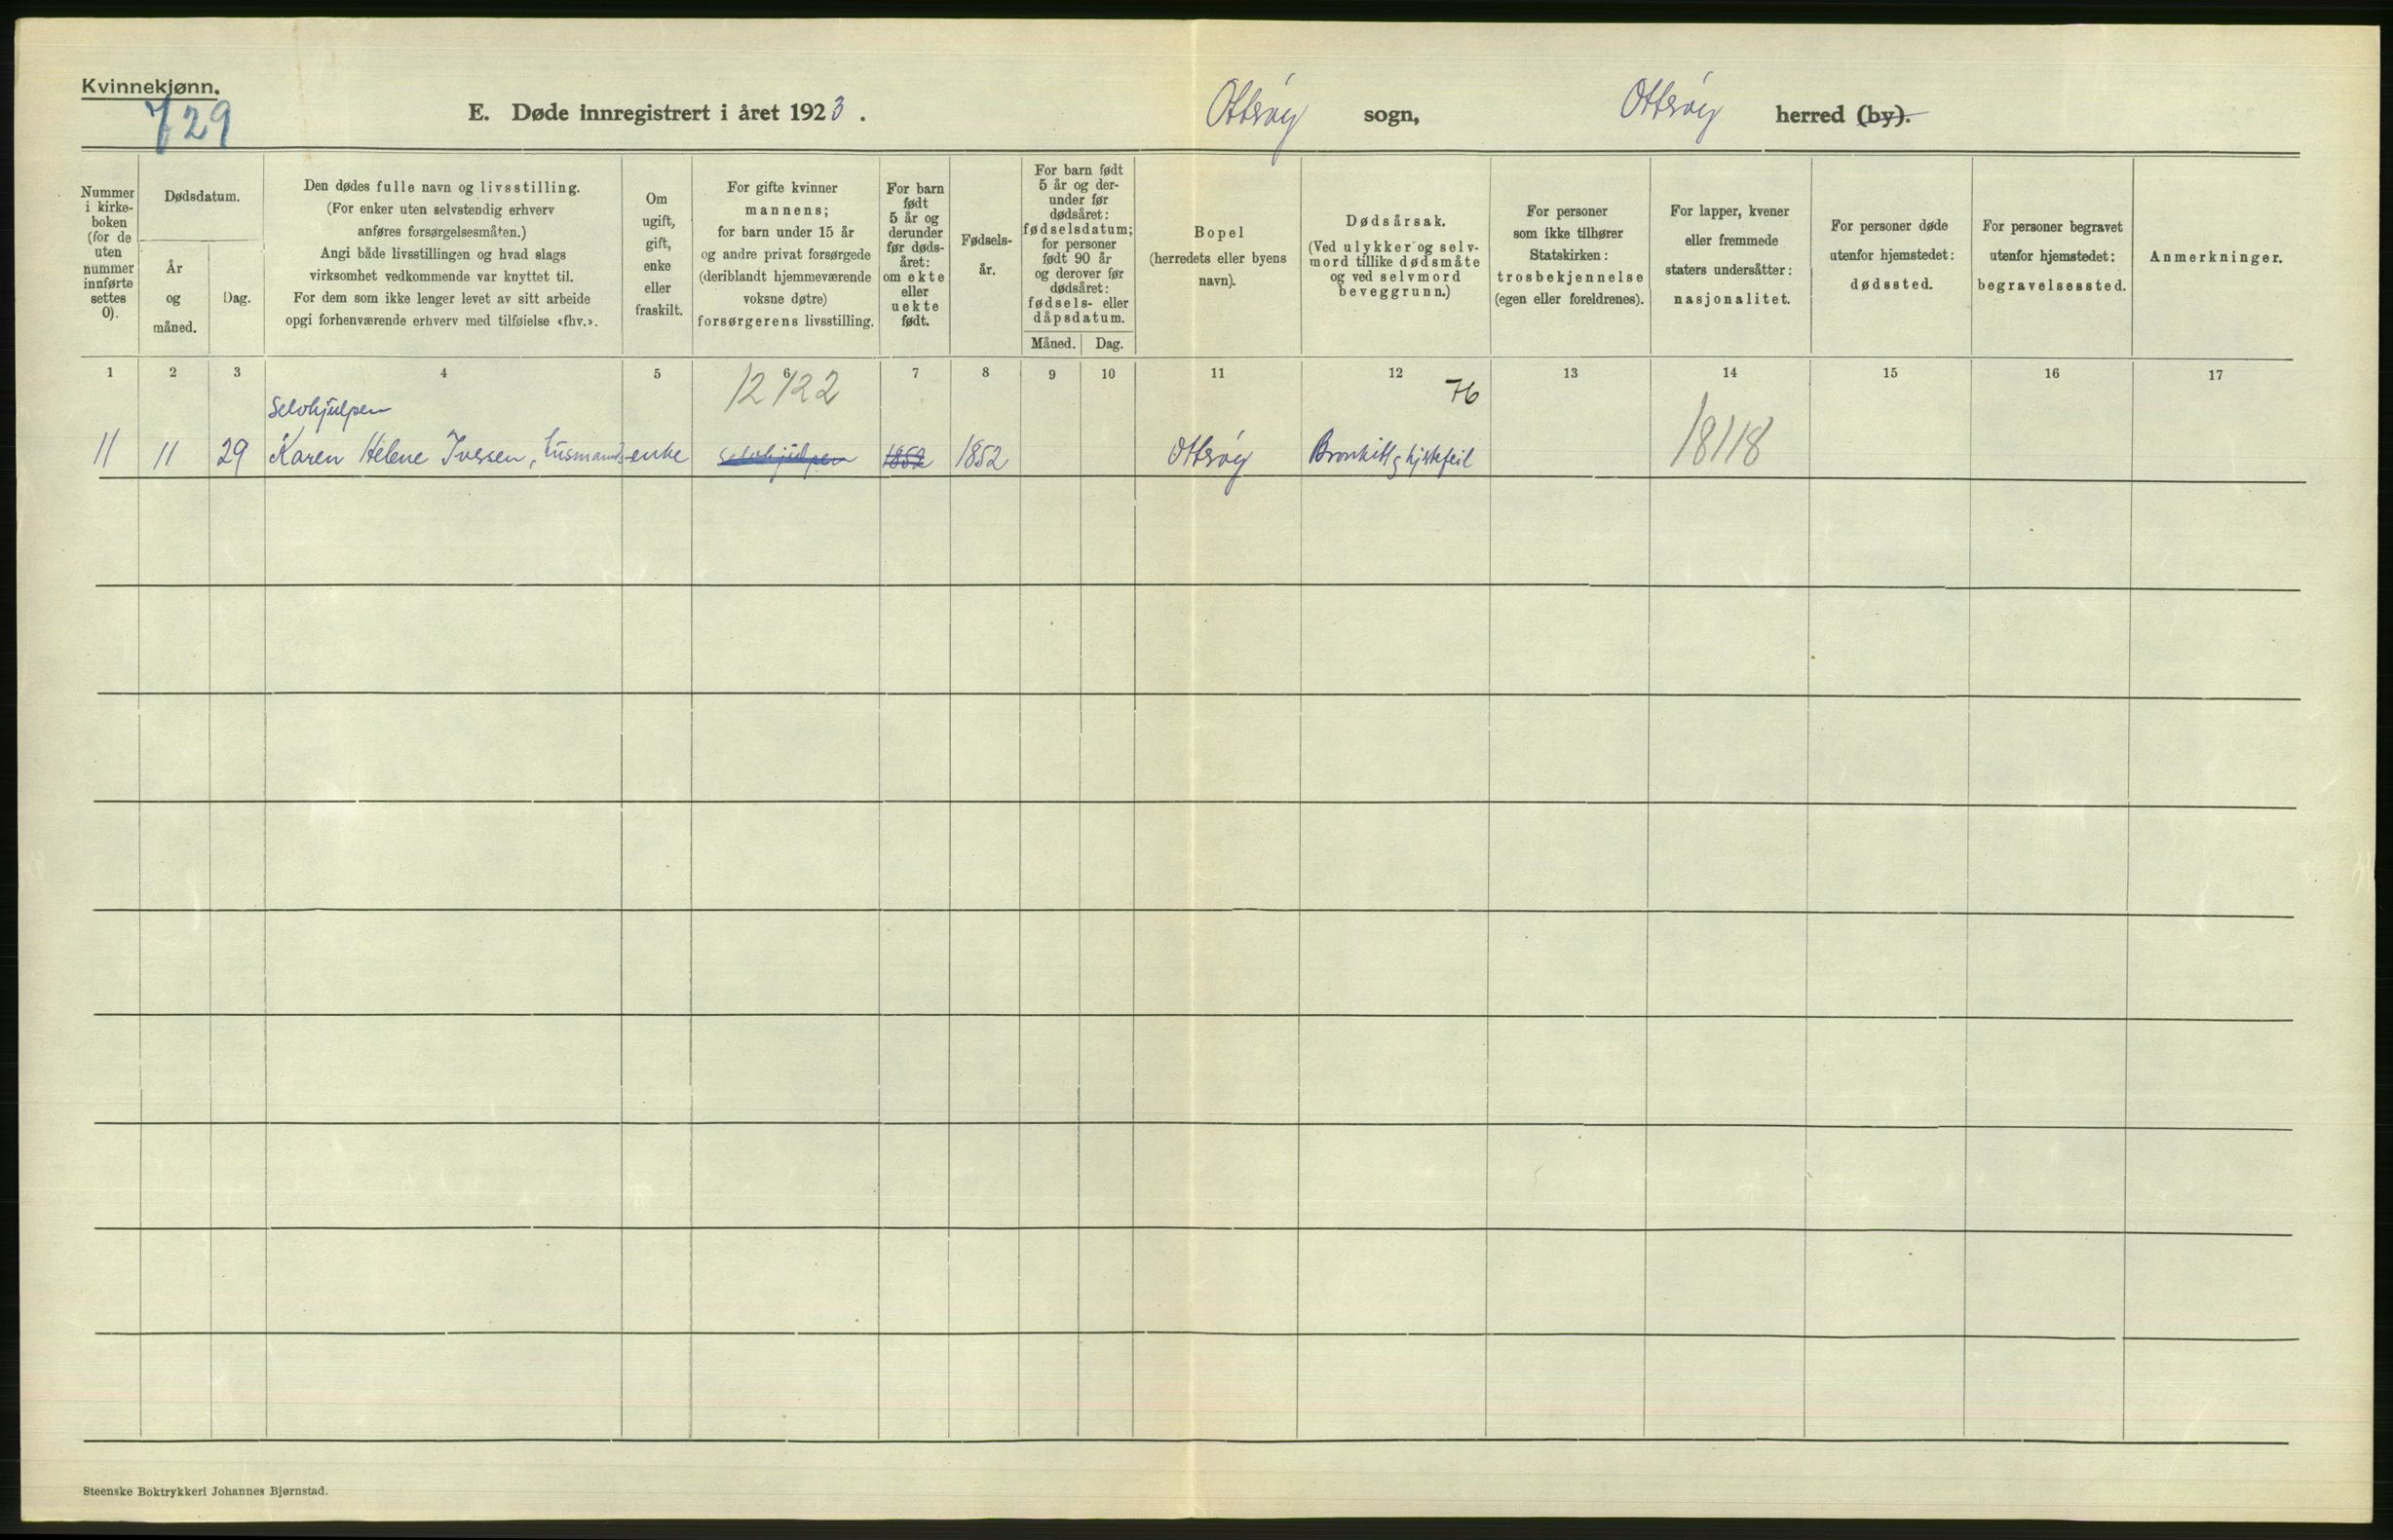 Kvinnekjønn.
729
E. Døde innregistrert i året 1923.
Otterøy sogn,
Otterøy herred (by).
Nummer
i kirke-
boken
(for de
uten
nummer
innførte
settes
0).
Dødsdatum.
År
og
måned.
Dag.
Den dødes fulle navn og livsstilling.
(For enker uten selvstendig erhverv
anføres forsørgelsesmåten.)
Angi både livsstillingen og hvad slags
virksomhet vedkommende var knyttet til.
For dem som ikke lenger levet av sitt arbeide
opgi forhenværende erhverv med tilføielse «fhv.».
Om
ugift,
gift,
enke
eller
fraskilt.
For gifte kvinner
mannens;
for barn under 15 år
og andre privat forsørgede
(deriblandt hjemmeværende
voksne døtre)
forsørgerens livsstilling.
For barn
født
5 år og
derunder
før døds-
året:
om ekte
eller
uekte
født.
Fødsels-
år.
For barn født
5 år og der-
under før
dødsåret:
fødselsdatum;
for personer
født 90 år
og derover før
dødsåret:
fødsels- eller
dåpsdatum.
Måned. Dag.
Bopel
(herredets eller byens
navn).
Dødsårsak.
(Ved ulykker og selv-
mord tillike dødsmåte
og ved selvmord
beveggrunn.)
For personer
som ikke tilhører
Statskirken:
trosbekjennelse
(egen eller foreldrenes).
For lapper, kvener
eller fremmede
staters undersåtter:
nasjonalitet.
For personer døde
utenfor hjemstedet:
dødssted.
For personer begravet
utenfor hjemstedet:
begravelsessted.
Anmerkninger.
1 2 3 4 5 6 7 8 9 10 11 12 13 14 15 16 17
12422
76
Selvhjulpen
11 11 29 Karen Helene Iversen, husmands enke selvhjulpen 1852 1852 Otterøy Bronkitt og hjertefeil 18118
Steenske Boktrykkeri Johannes Bjørnstad.